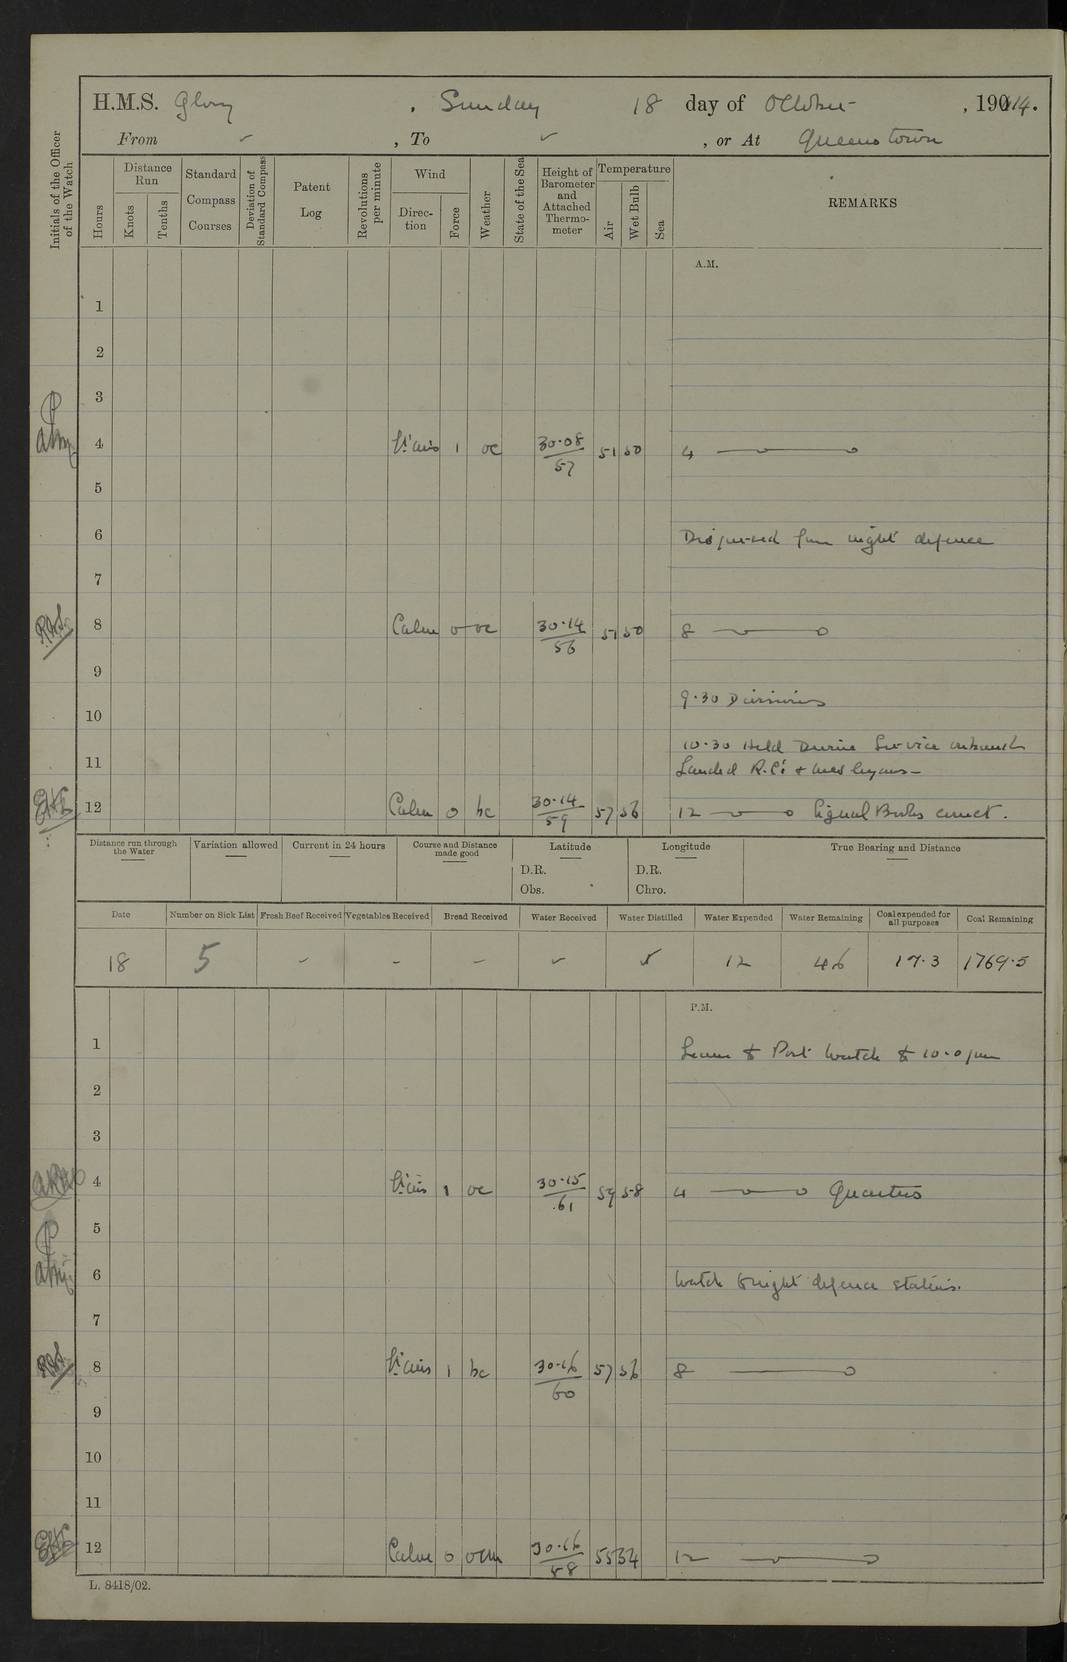 H.M.S. Glory , Sunday 18 day of October , 1914.
From ✓ , To ✓ , or At Queenstown
Initials of the Officer of the Watch
Hours
Distance Run
Knots
Tenths
Standard Compass Courses
Deviation of Standard Compass
Patent Log
Revolutions per minute
Wind
Direction
Force
Weather
State of the Sea
Height of Barometer and Attached Thermometer
Temperature
Air
Wet Bulb
Sea
REMARKS
A.M.
1
2
3
4 V'airs 1 oc 30·08/57 51 50 4
5
6 Dispersed from night defence
7
8 Calm o oc 30·14/56 51 50 8
9
9·30 Divisions
10
10·30 Held Divine Service
11 Landed R.C's & Wesleyans
12 Calm o bc 30·14/59 57 56 12 Signal Books correct.
Distance run through the Water
Variation allowed
Current in 24 hours
Course and Distance made good
Latitude
D.R.
Obs.
Longitude
D.R.
Chro.
True Bearing and Distance
Date Number on Sick List Fresh Beef Received Vegetables Received Bread Received Water Received Water Distilled Water Expended Water Remaining Coal expended for all purposes Coal Remaining
18 5 - - - ✓ 5 12 46 17·3 1769·5
P.M.
1 Leave to Port Watch to 10·0 pm
2
3
4 V'airs 1 oc 30·15/61 59 58 4 Quarters
5
6 Watch to night defence stations.
7
8 V'airs 1 bc 30·16/60 57 56 8
9
10
11
12 Calm o ocm 30·16/58 55 54 12
L. 8418/02.